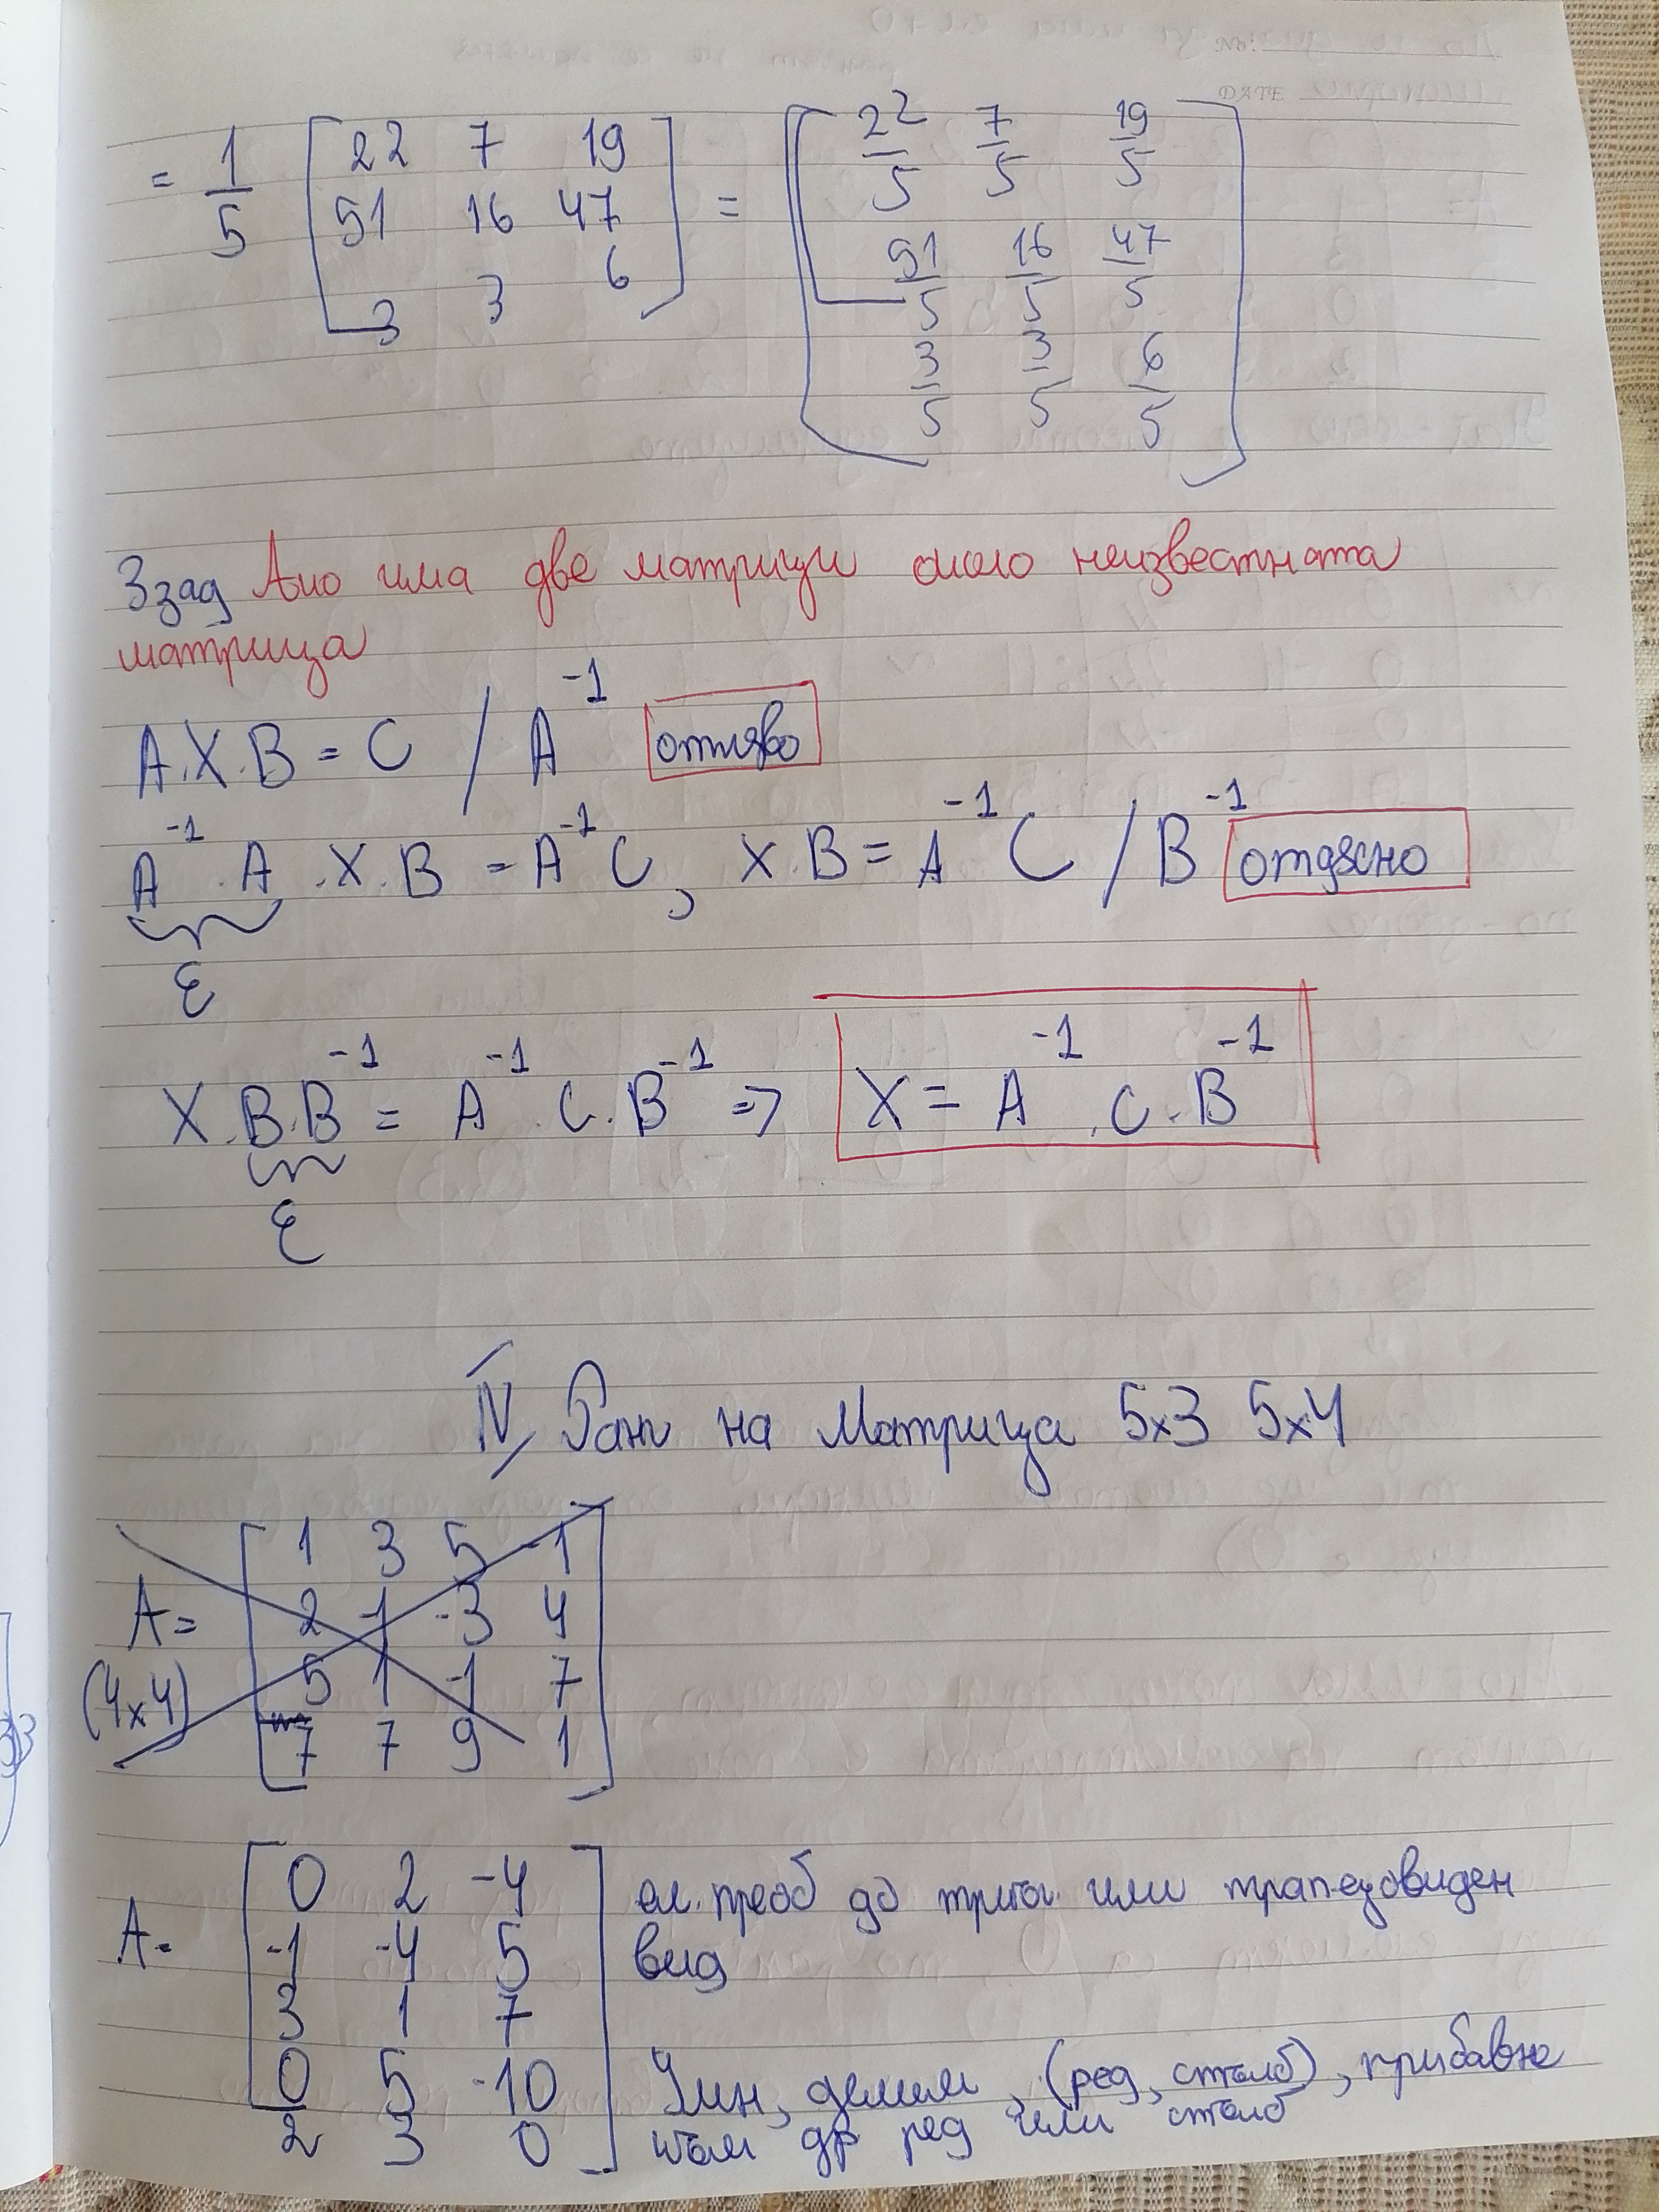 No:
DATE
= 1/5 [22 7 19
51 16 47
3 3 6] = [22/5 7/5 19/5
51/5 16/5 47/5
3/5 3/5 6/5]
3 зад Ако има две матрици около неизвестната
матрица
A.X.B = C / A⁻¹ отляво
A⁻¹.A.X.B = A⁻¹C, X.B = A⁻¹C / B⁻¹ отдясно
E
X.B.B⁻¹ = A⁻¹.C.B⁻¹ => X = A⁻¹.C.B⁻¹
E
IV, Ранг на Матрица 5x3 5x4
A = [1 3 5 -1
2 -1 -3 4
(4x4) 5 1 -1 7
7 7 9 1]
A = [0 2 -4] ел. преоб до триъг. или трапецовиден
[-1 -4 5] вид
3 1 7
0 5 -10 Умн, делим, (ред, стълб), прибавяне
2 3 0 към др ред или стълб